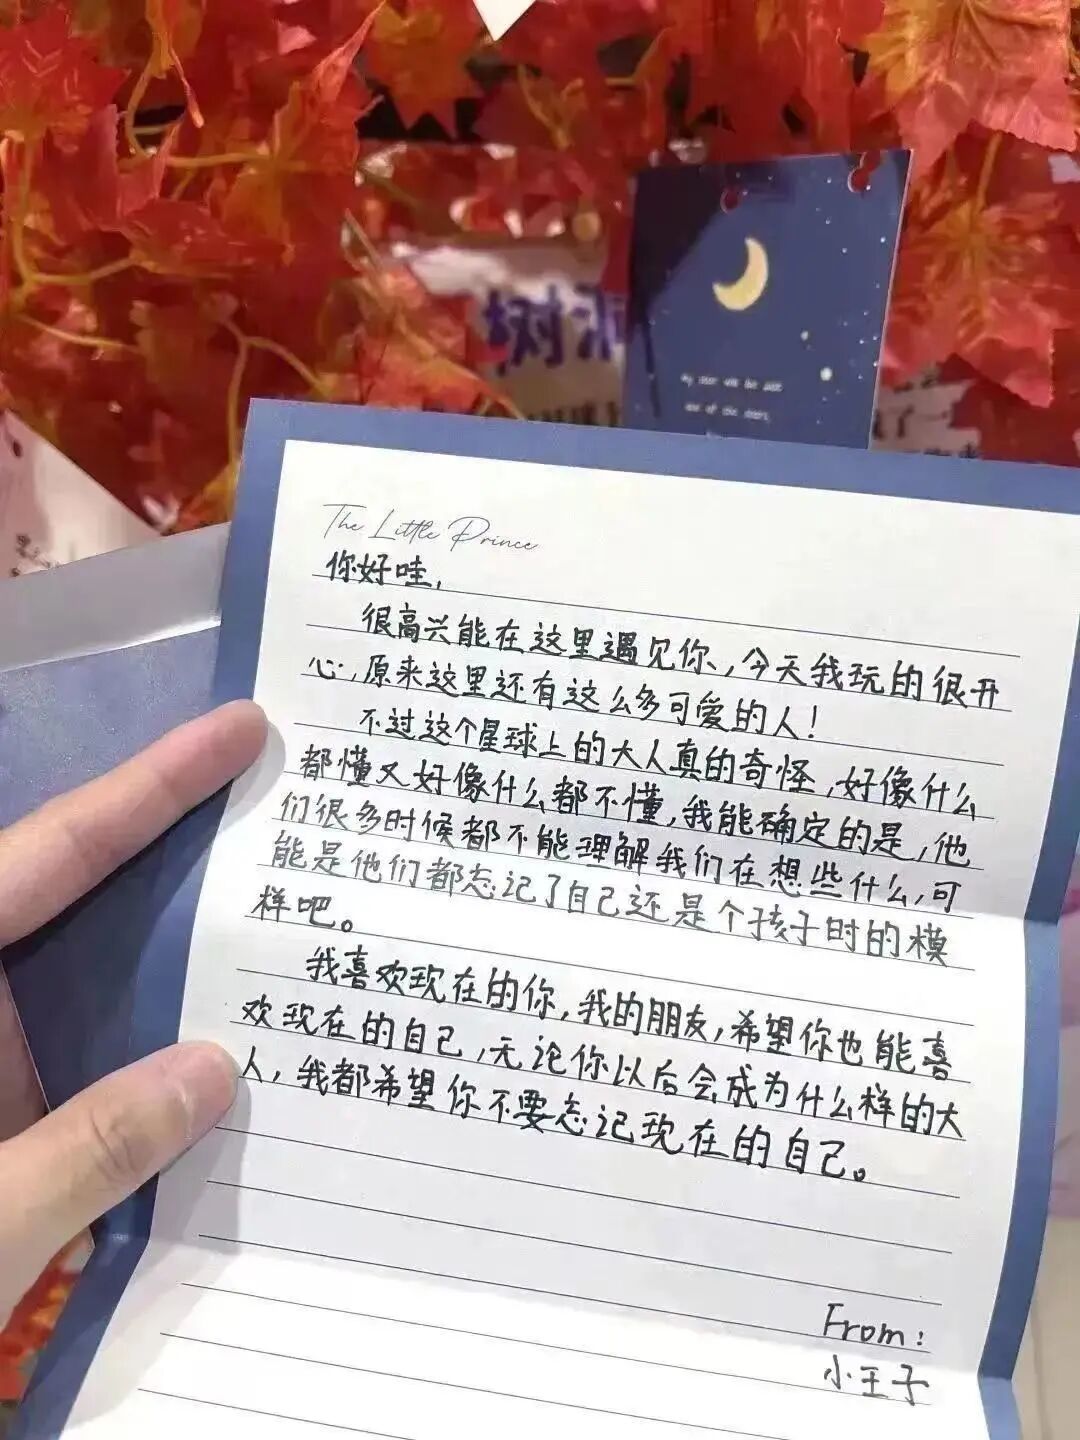 树
My star will be just
one of the stars,
The Little Prince
你好哇,
很高兴能在这里遇见你,今天我玩的很开
心,原来这里还有这么多可爱的人!
不过这个星球上的大人真的奇怪,好像什么
都懂又好像什么都不懂,我能确定的是,他
们很多时候都不能理解我们在想些什么,可
能是他们都忘记了自己还是个孩子时的模
样吧。
我喜欢现在的你,我的朋友,希望你也能喜
欢现在的自己,无论你以后会成为什么样的大
人,我都希望你不要忘记现在的自己。
From:
小王子